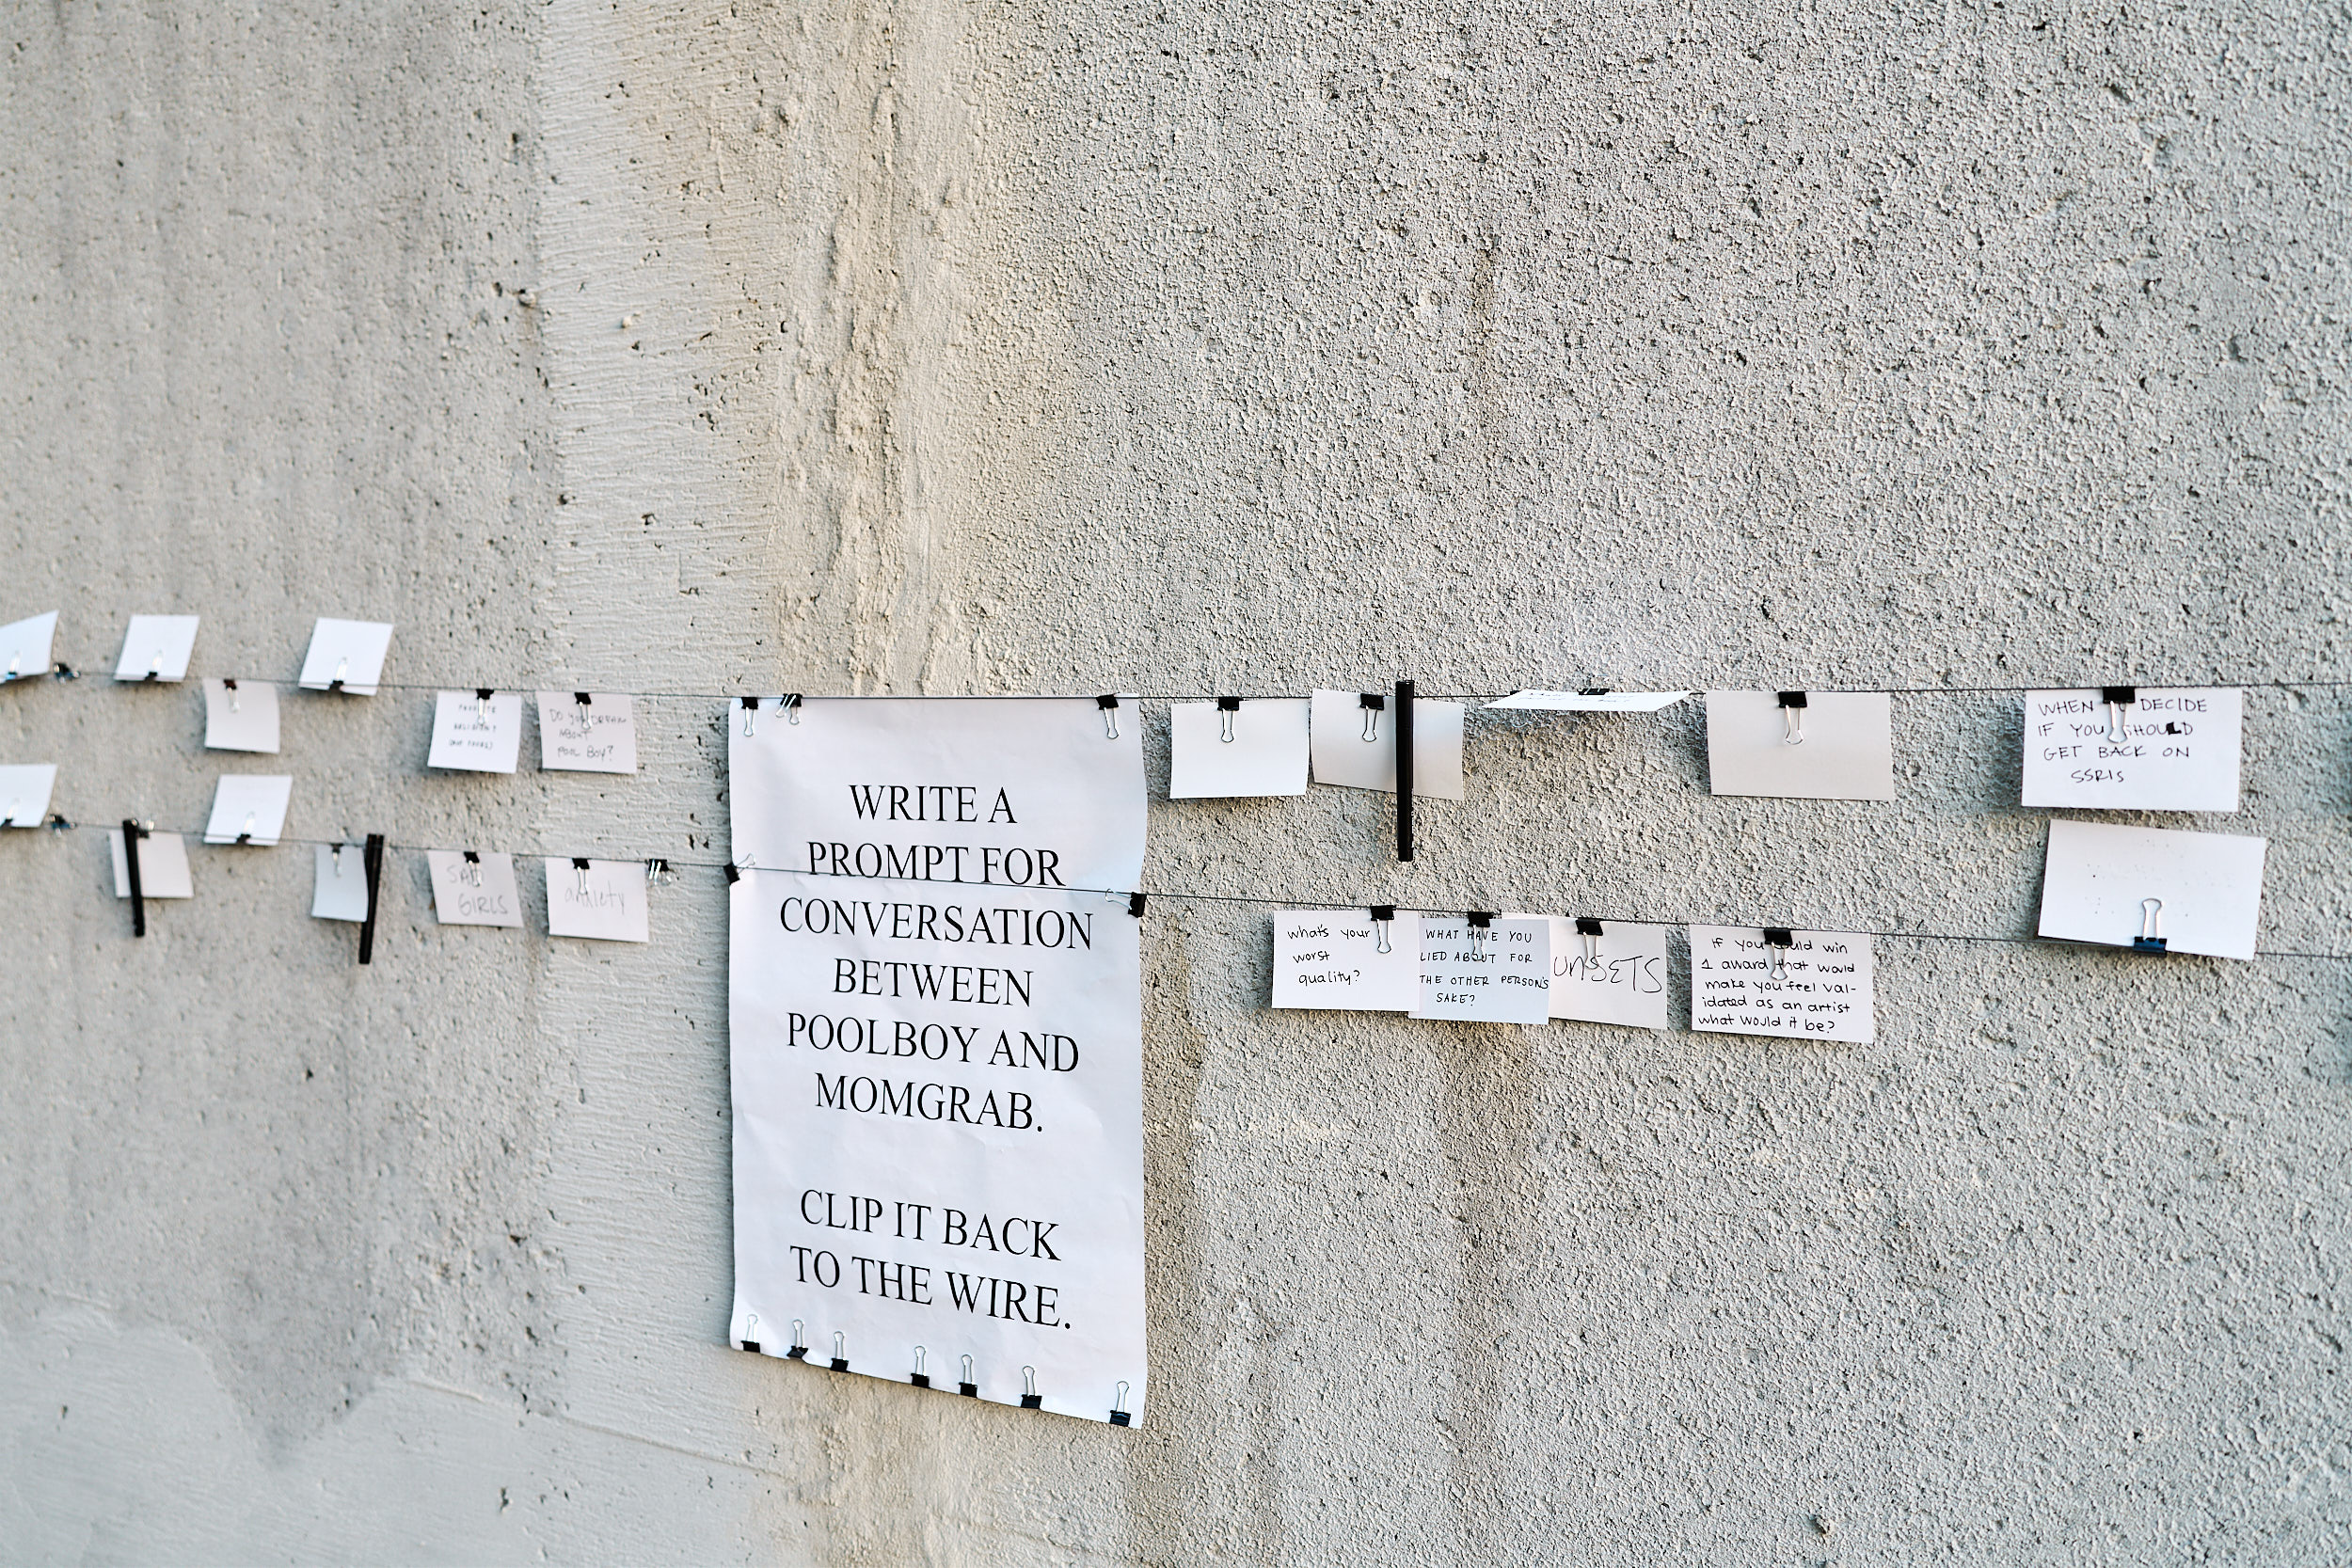 FAVORITE
RELIGION?
DO YOU DREAM
ABOUT
POOL BOY?
SAD
GIRLS
anxiety
WRITE A
PROMPT FOR
CONVERSATION
BETWEEN
POOLBOY AND
MOMGRAB.
CLIP IT BACK
TO THE WIRE.
WHEN DECIDE
IF YOU SHOULD
GET BACK ON
SSRIS
what's your
worst
quality?
WHAT HAVE YOU
LIED ABOUT FOR
THE OTHER PERSON'S
SAKE?
If you could win
1 award that would
make you feel val-
idated as an artist
what would it be?